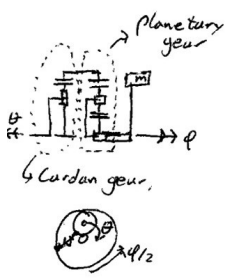 planetary
gear
m
θ
φ
↳ Cardan gear,
θ
φ/2